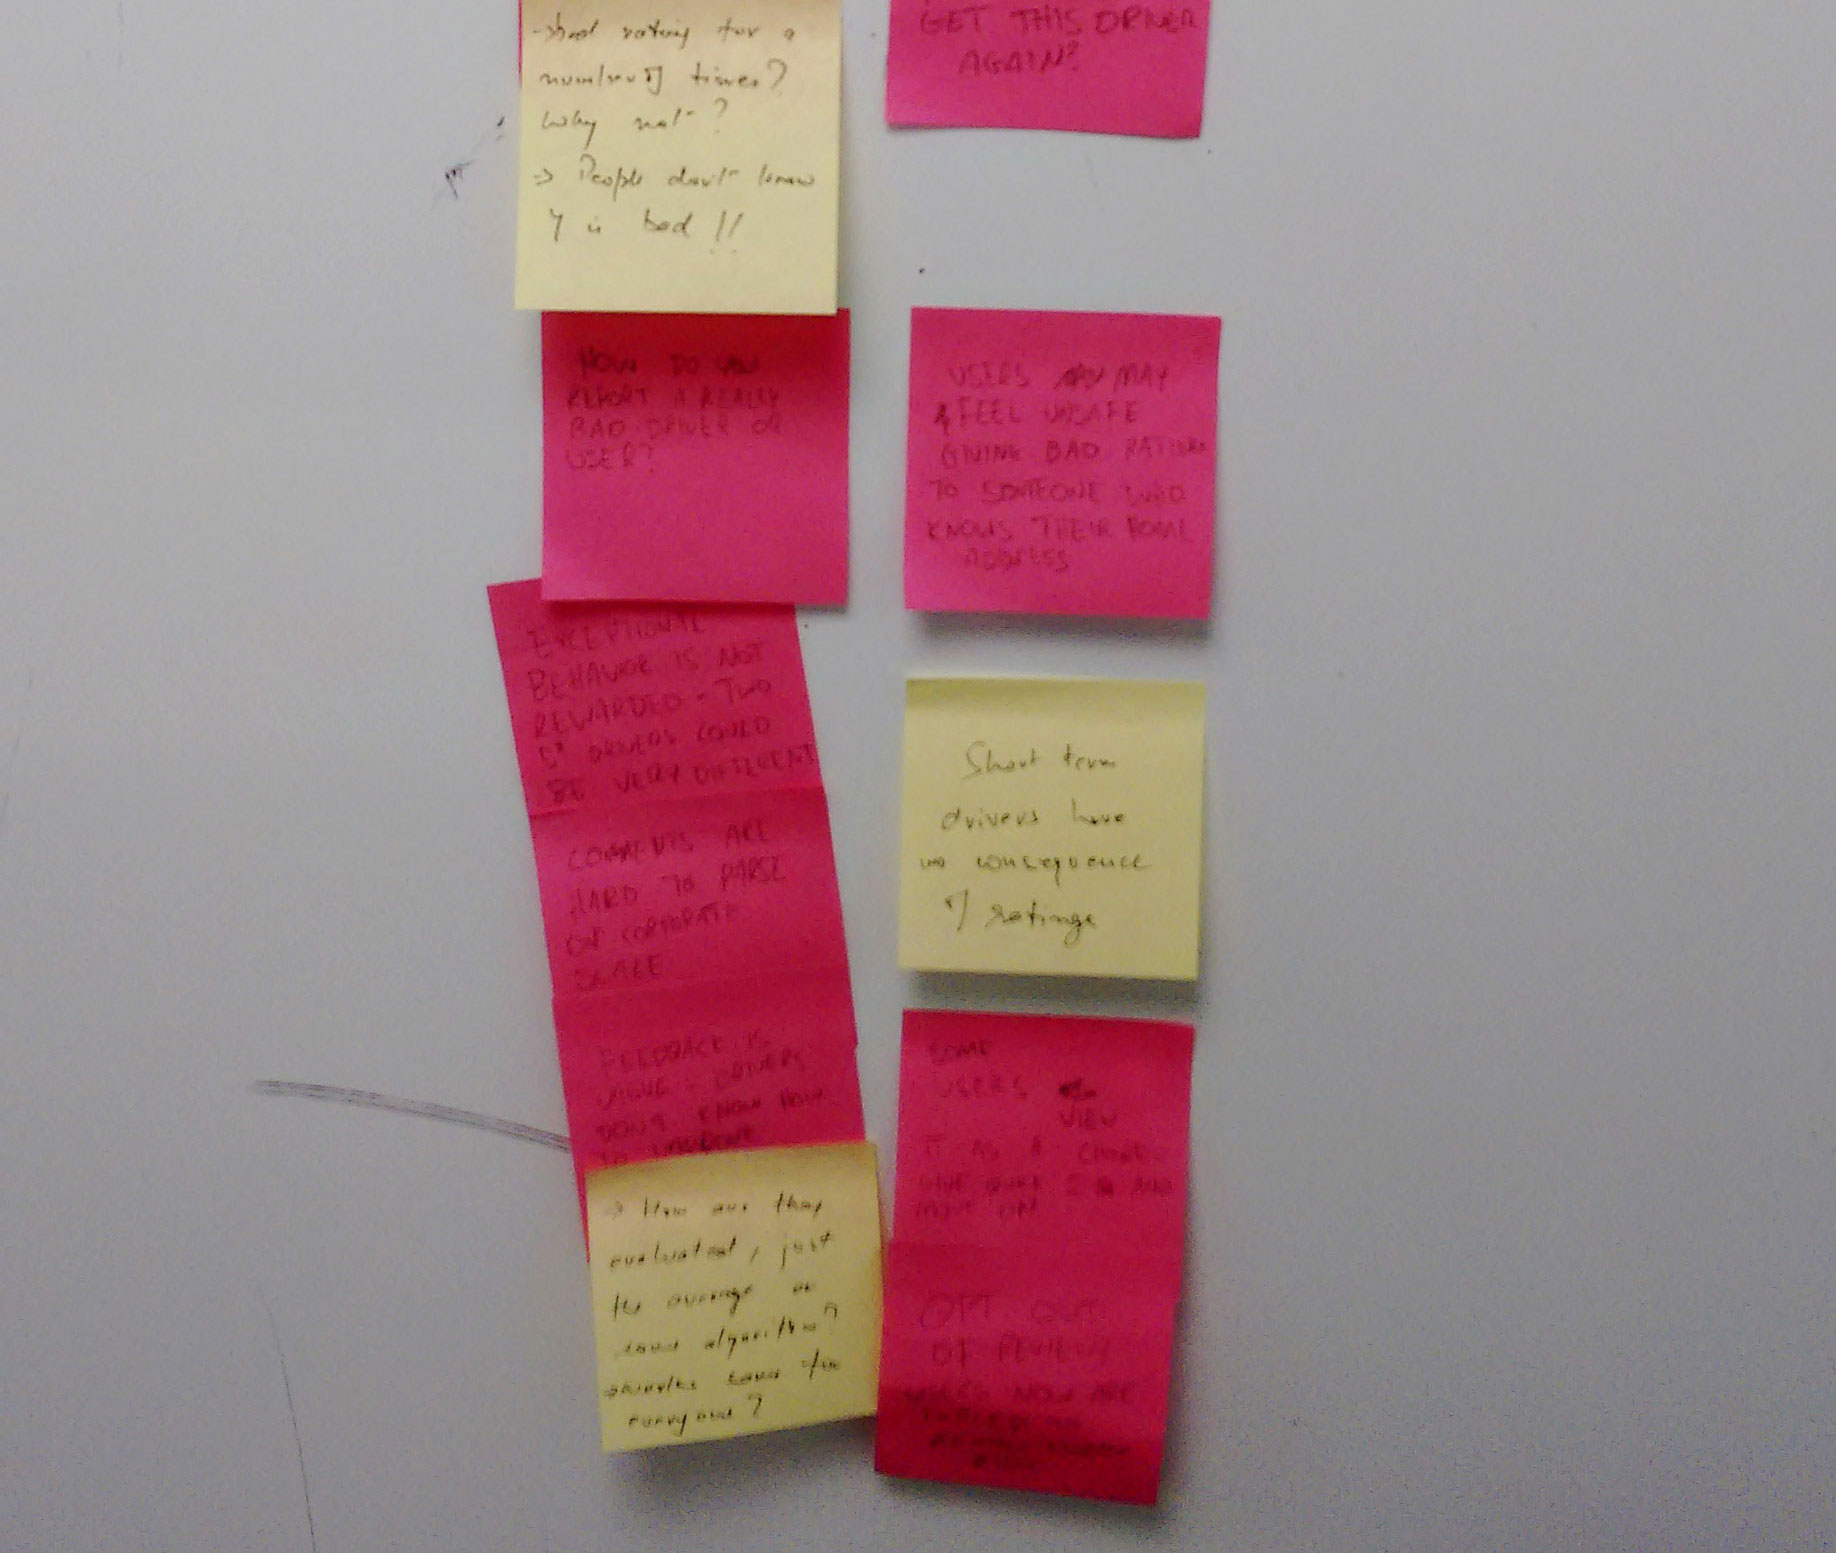 rating for a
number of times?
Why not?
→ People don't know
4 is bad !!
HOW DO YOU
REPORT A REALLY
BAD DRIVER OR
USER?
BEHAVIOR IS NOT
REWARDED - TWO
5* DRIVERS COULD
BE VERY DIFFERENT
COMMENTS ARE
HARD TO PARSE
ON CORPORATE
SCALE
FEEDBACK IS
VAGUE - DRIVERS
DON'T KNOW HOW
TO IMPROVE
→ How are they
evaluated, just
the average or
some algorithm?
same for
everyone?
GET THIS DRIVER
AGAIN?
USERS MAY
FEEL UNSAFE
GIVING BAD RATING
TO SOMEONE WHO
KNOWS THEIR HOME
ADDRESS
Short term
drivers have
no consequence
of ratings
SOME
USERS
VIEW
IT AS A CHORE
GIVE AND
OPT OUT
OF REVIEW
USERS ARE